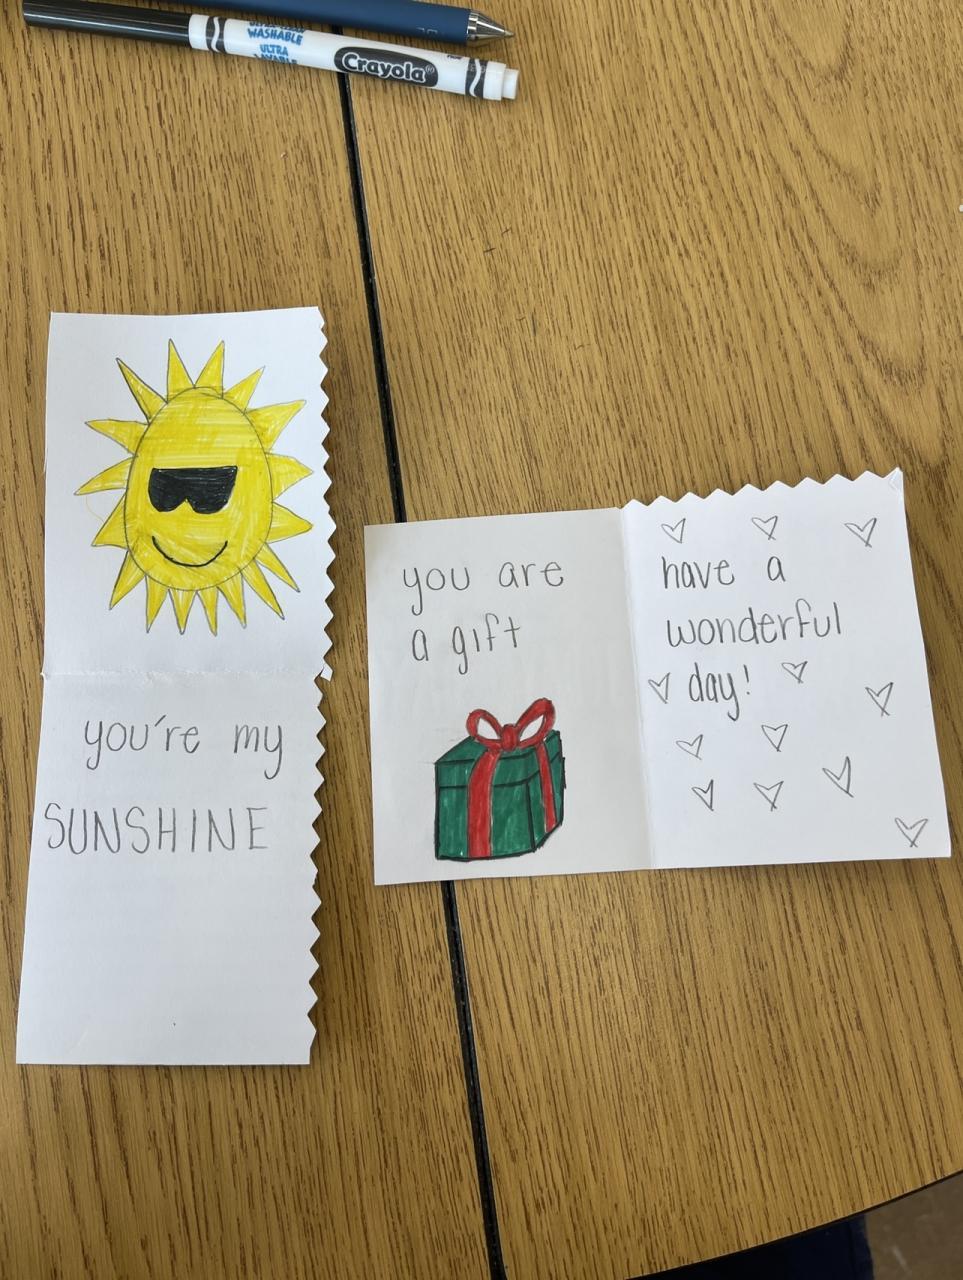 WASHABLE
ULTRA
Crayola
you're my
SUNSHINE
you are
a gift
have a
wonderful
day!